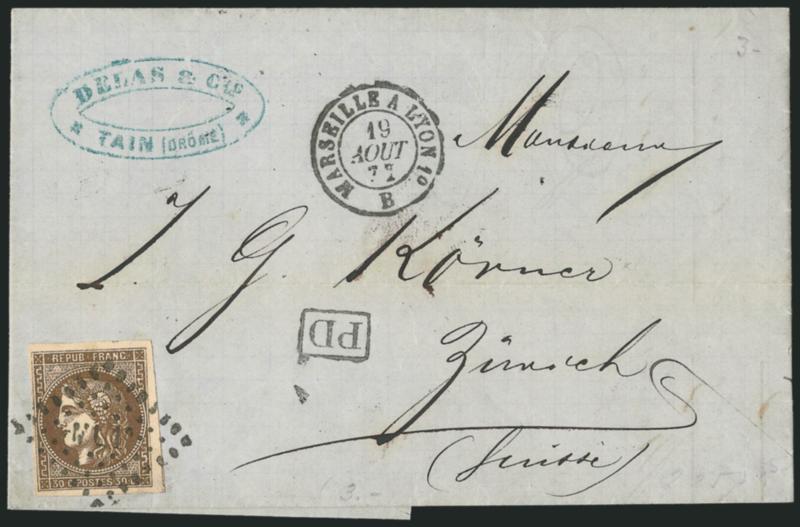 DELAS & Cie
TAIN (DRÔME)
MARSEILLE A LYON 1º
19
AOUT
71
B
Monsieur
J. G. Körner
Zürich
(Suisse)
PD
REPUB. FRANC.
30 C. POSTES 30 C.
3.-
3.-